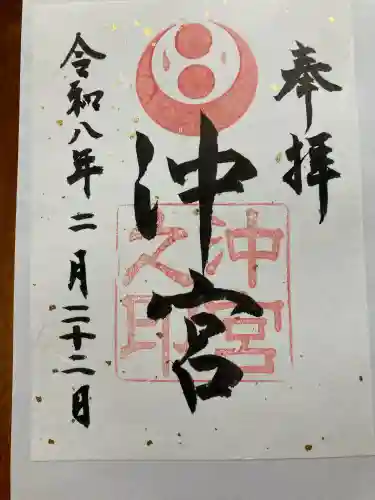 奉拝
沖宮
沖宮之印
令和八年二月二十二日